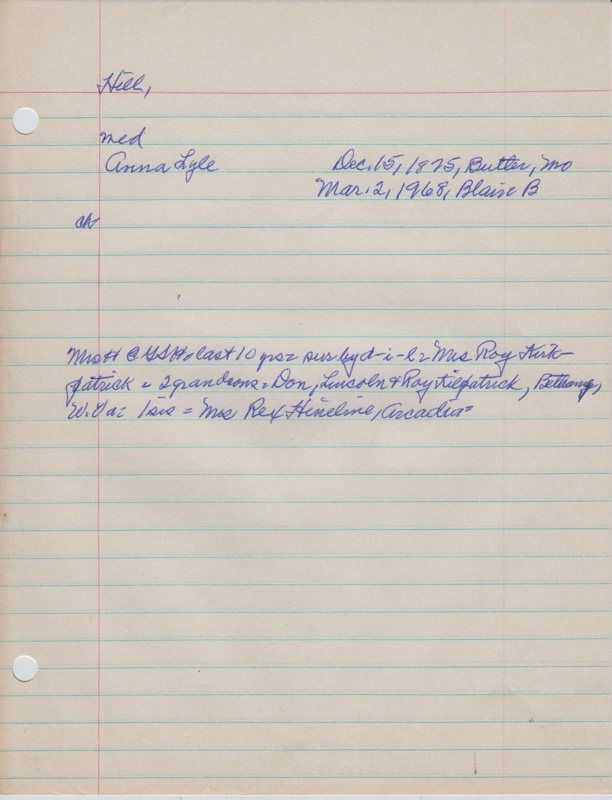 Hill,
med
Anna Lyle Dec. 15, 1875, Butler, Mo
Mar. 2, 1968, Blair B
ch
Mrs H @ last 10 yrs = sur by d-i-l = Mrs Roy Kirk-
patrick = 2 grandsons = Don, Lincoln & Roy Kilpatrick, Bethany,
W. Va = 1 sis = Mrs Rex Hineline, Arcadia =